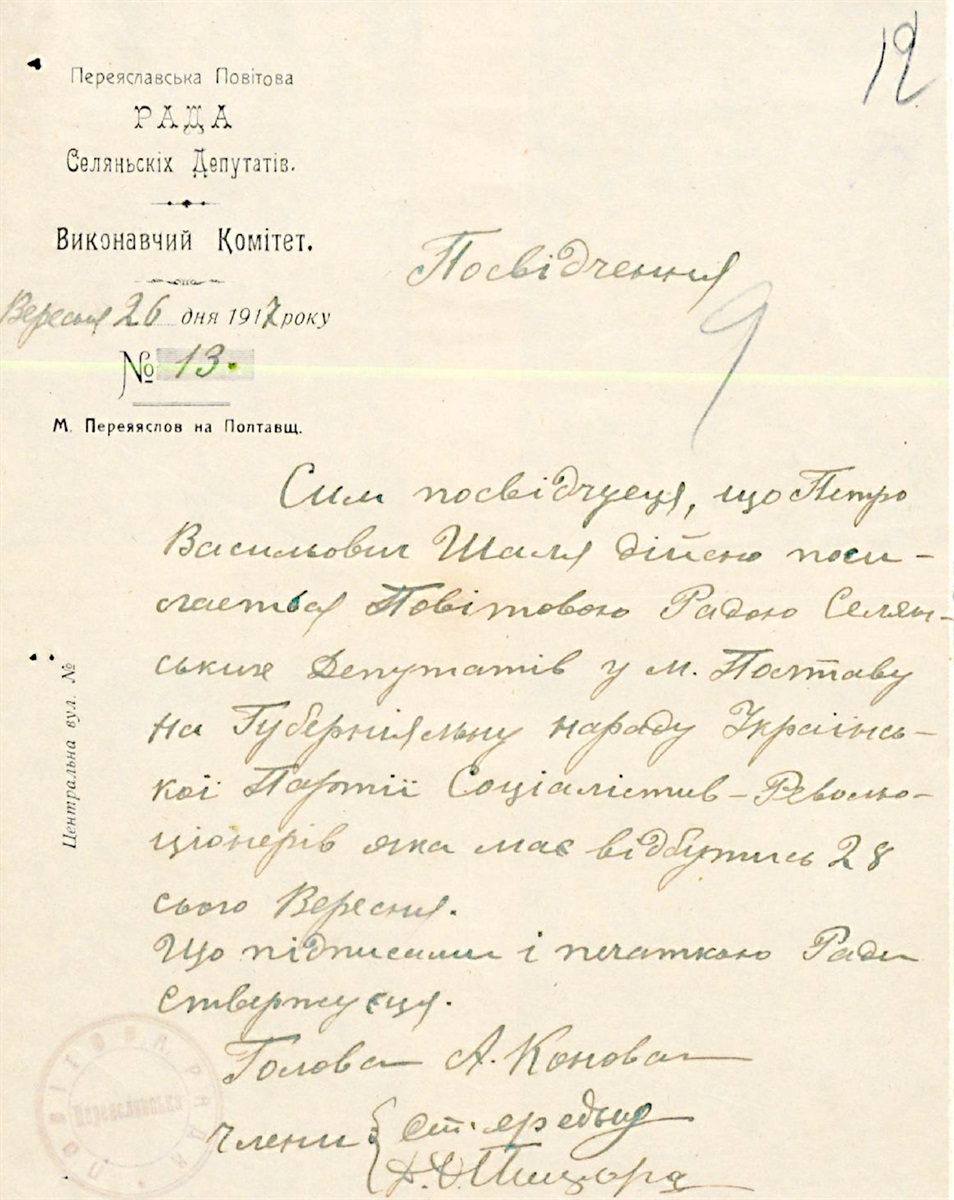 12
Переяславська Повітова
РАДА
Селяньскіх Депутатів.
Виконавчий Комітет.
Вересня 26 дня 1917 року
№ 13.
М. Переяяслов на Полтавщ.
Посвідчення
9
Сим посвідчуеця, що Петро
Васильович Шаля дійсно поси-
лаеться Повітовою Радою Селян-
ських Депутатів у м. Полтаву
на Губерніяльну нараду Українсь-
кої Партії Соціалістив-Револю-
ціонерів яка має відбутись 28
сього Вересня.
Що підписами і печаткою Ради
ствержуєця.
Голова А. Конова
Члени
Центральна вул. №
ПОВІТОВА РАДА
Переяславська